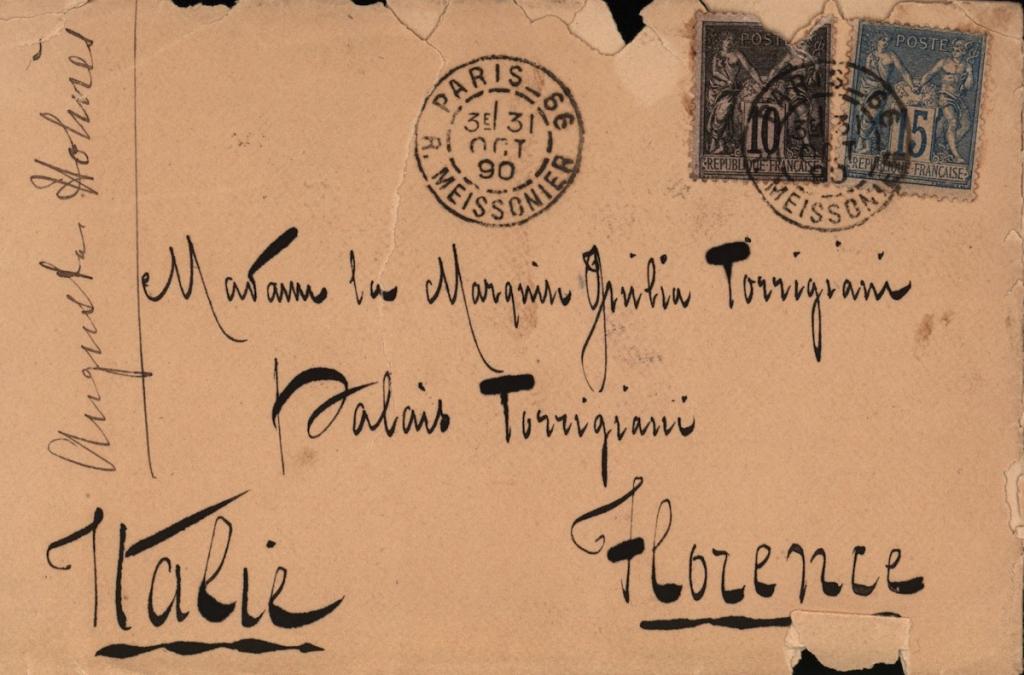 Augusta Holmès
PARIS_66
3E/ 31
OCT
90
R. MEISSONIER
POSTES
10
REPUBLIQUE FRANCAISE
POSTES
15
REPUBLIQUE FRANCAISE
PARIS_66
3E/ 31
OCT
90
R. MEISSONIER
Madame la Marquise Giulia Torrigiani
Palais Torrigiani
Italie
Florence